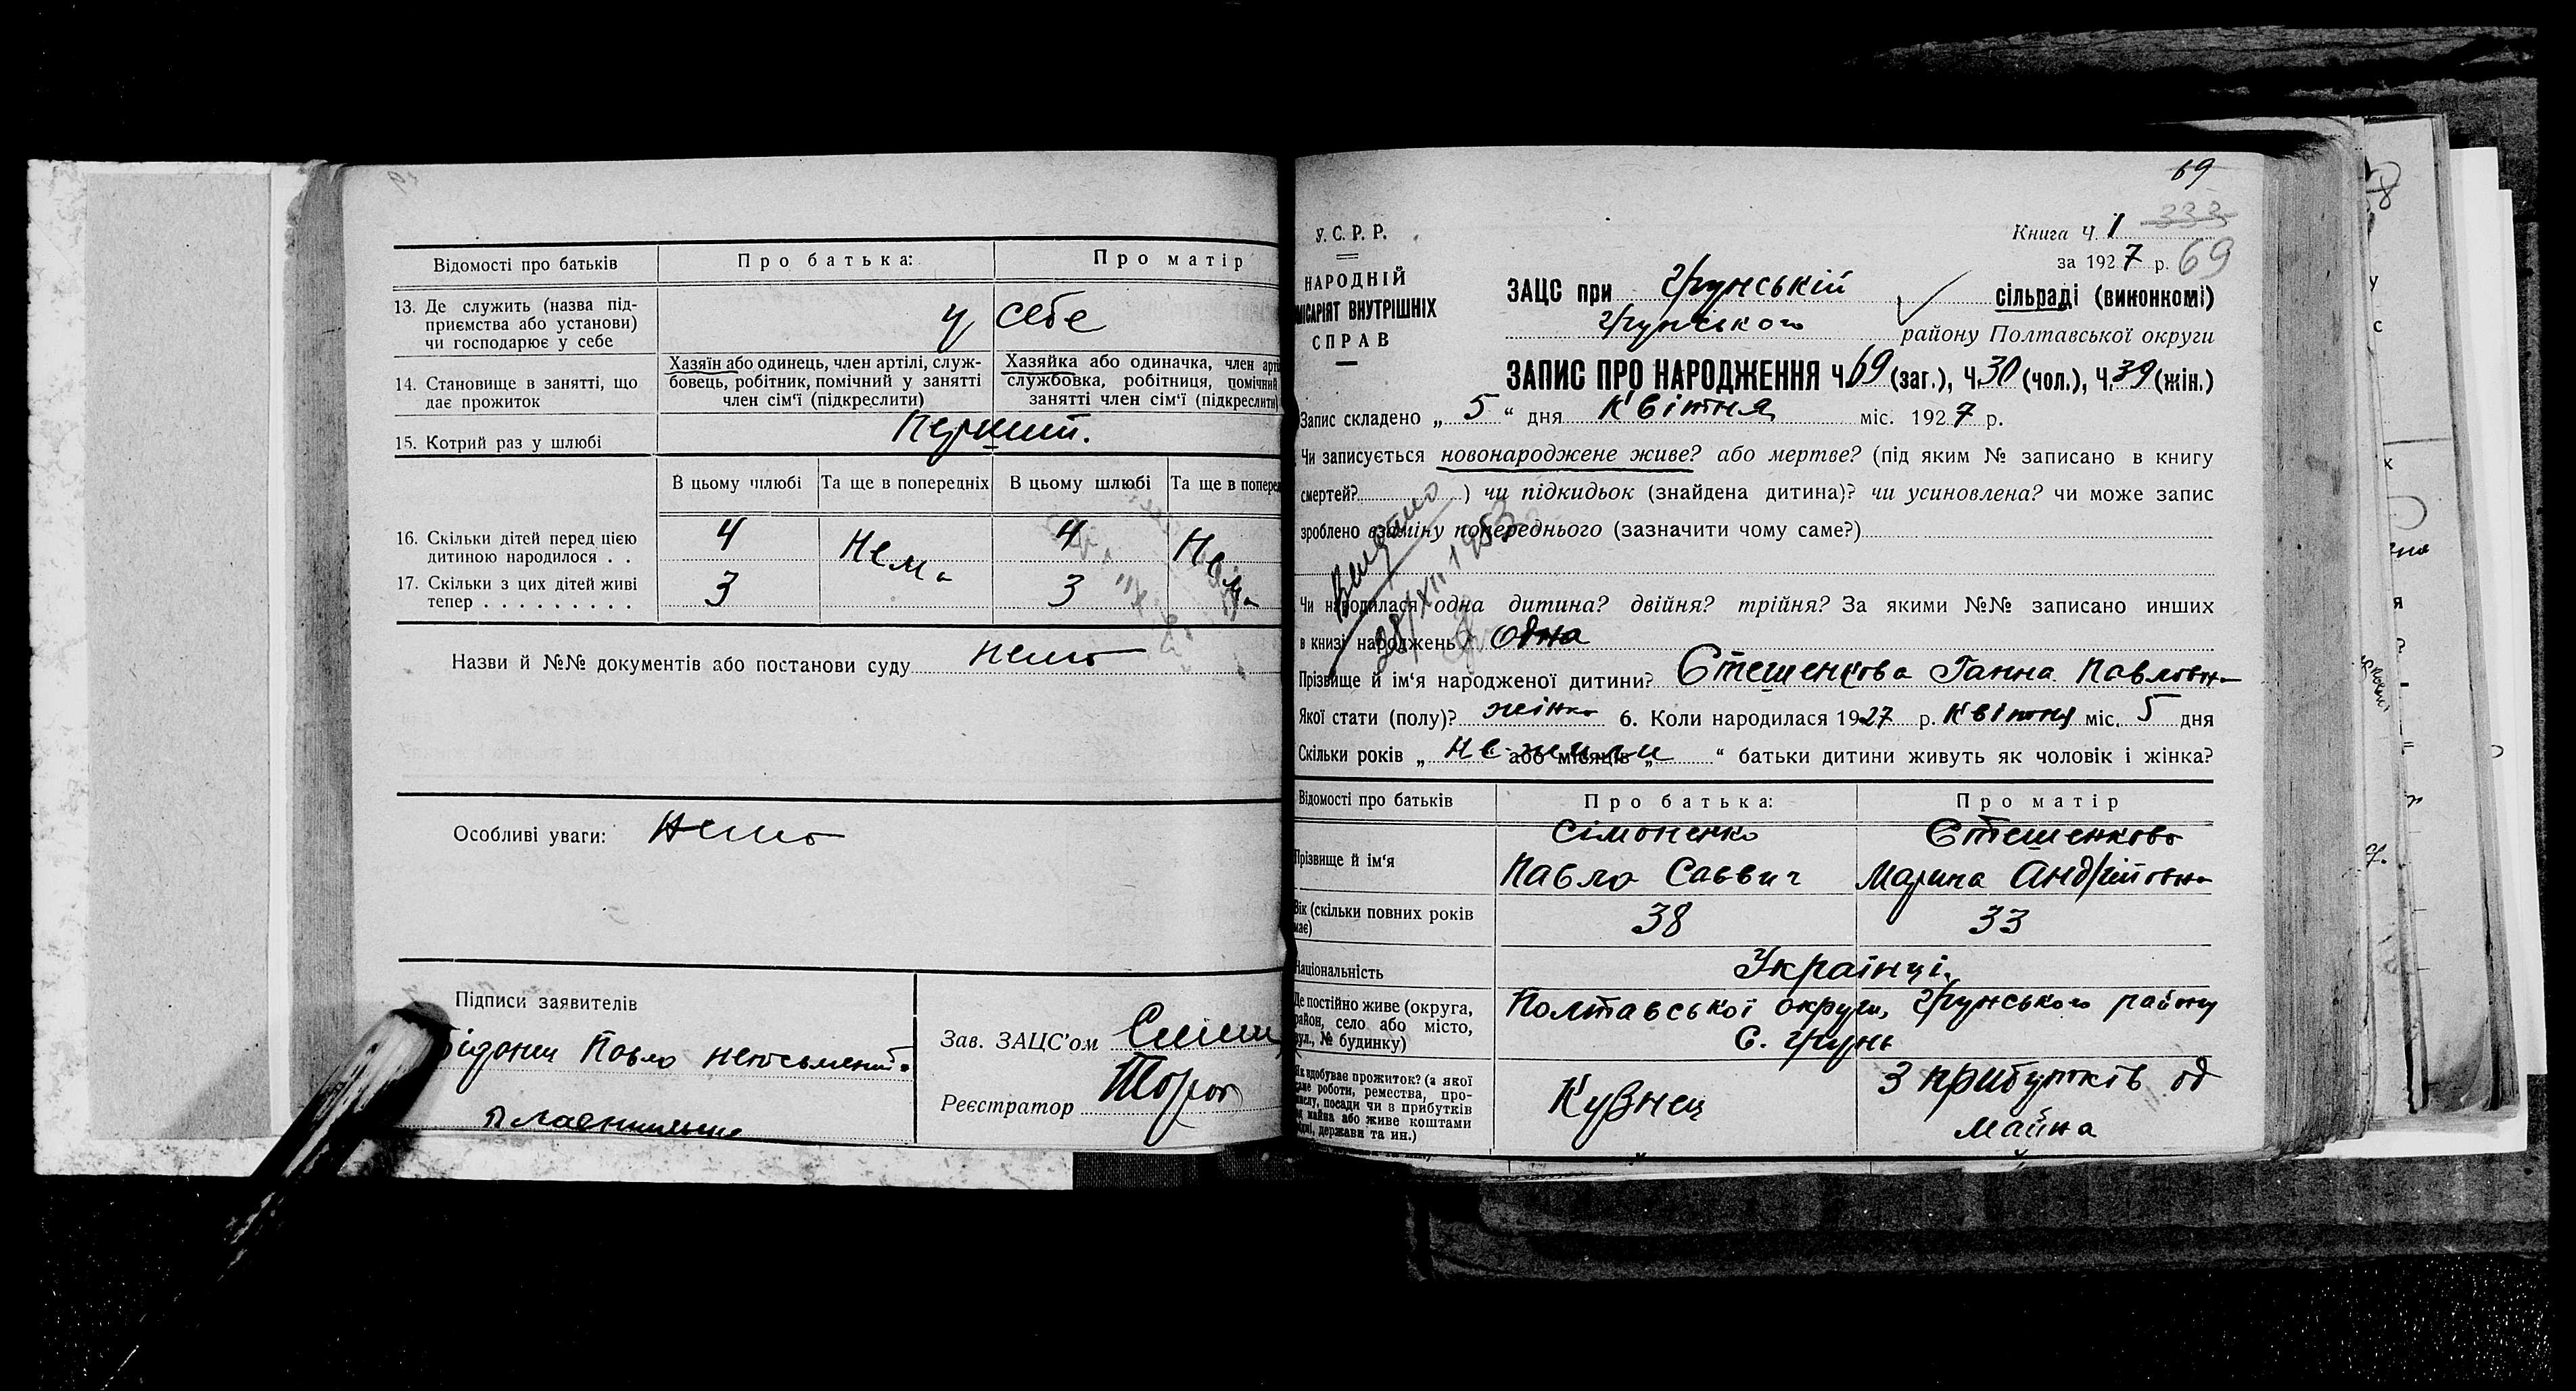 Відомості про батьків
Про батька:
Про матір
13. Де служить (назва під-
приємства або установи)
чи господарює у себе
у себе
14. Становище в занятті, що
дає прожиток
Хазяїн або одинець, член артілі, служ-
бовець, робітник, помічний у занятті
член сім'ї (підкреслити)
Хазяйка або одиначка, член арті
службовка, робітниця, помічний
занятті член сім'ї (підкреслити)
15. Котрий раз у шлюбі
Перший.
В цьому шлюбі
Та ще в попередніх
В цьому шлюбі
Та ще в поперед
16. Скільки дітей перед цією
дитиною народилося . .
4
Нема
4
Нема
17. Скільки з цих дітей живі
тепер . . . . . . . . .
3
3
Назви й №№ документів або постанови суду нема
Особливі уваги: Нема
Підписи заявителів
Павло
Зав. ЗАЦС'ом
Реєстратор
69
У.С.Р.Р.
НАРОДНІЙ
МІСАРІЯТ ВНУТРІШНІХ
СПРАВ
Книга Ч. 1 333
за 1927 р. 69
ЗАЦС при Грунській сільраді (виконкомі)
Грунського району Полтавської округи
ЗАПИС ПРО НАРОДЖЕННЯ Ч. 69 (заг.), Ч. 30 (чол.), Ч. 39 (жін.)
Запис складено „ 5 “ дня Квітня міс. 1927 р.
Чи записується новонароджене живе? або мертве? (під яким № записано в книгу
смертей? ) чи підкидьок (знайдена дитина)? чи усиновлена? чи може запис
зроблено взаміну попереднього (зазначити чому саме?)
28/XII 1953
Чи народилася одна дитина? двійня? трійня? За якими №№ записано инших
в книзі народжень? Одна
Прізвище й ім'я народженої дитини? Стешенкова Ганна Павловн
Якої стати (полу)? жінка 6. Коли народилася 1927 р. Квітня міс. 5 дня
Скільки років „ не жили або місяців „ “ батьки дитини живуть як чоловік і жінка?
Відомості про батьків
Про батька:
Про матір
Прізвище й ім'я
Сімоненко
Павло Саввич
Стешенкова
Марина Андрійовна
Вік (скільки повних років
має)
38
33
Національність
Українці.
Де постійно живе (округа,
район, село або місто,
вул., № будинку)
Полтавської округи, Грунського району
С. Грунь
Як здобуває прожиток? (з якої
саме роботи, ремества, про-
мислу, посади чи в прибутків
од майна або живе коштами
рідні, держави та ин.)
Кузнец
З прибутків од
майна